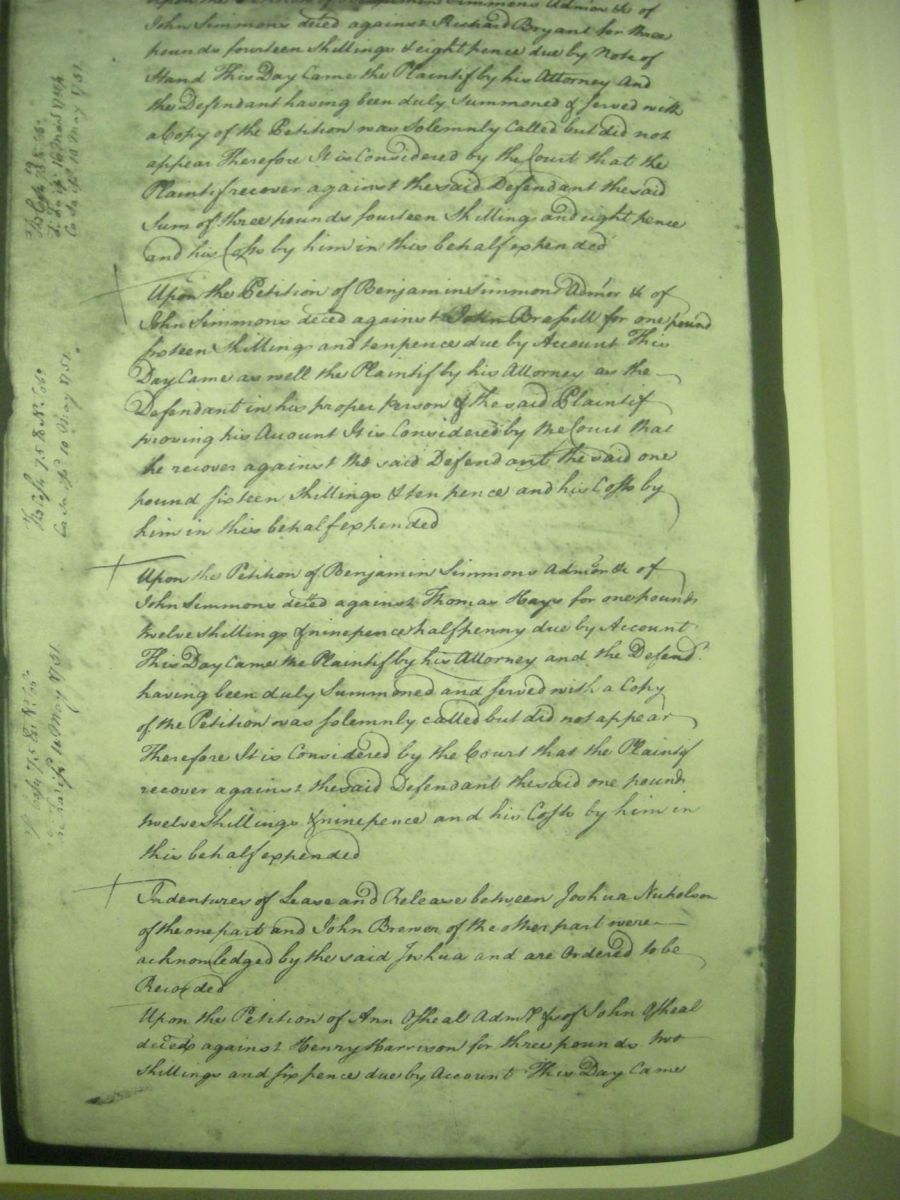 Upon the Petition of Benjamin Simmons Admor &c of
John Simmons deced against Richard Bryant for three
pounds fourteen Shillings & eight pence due by Note of
Hand This Day Came the Plaintif by his Attorney and
the Defendant having been duly Summoned & served with
a Copy of the Petition was Solemnly Called but did not
appear Therefore It is Considered by the Court that the
Plaintif recover against the said Defendant the said
Sum of three pounds fourteen Shillings and eight pence
and his Costs by him in this behalf expended
Upon the Petition of Benjamin Simmons Admor &c of
John Simmons deced against John Bressill for one pound
sixteen Shillings and tenpence due by Account This
Day Came as well the Plaintif by his Attorney as the
Defendant in his proper person & the said Plaintif
proving his Account It is Considered by the Court that
he recover against the said Defendant the said one
pound sixteen Shillings & ten pence and his Costs by
him in this behalf expended
Upon the Petition of Benjamin Simmons Admor &c of
John Simmons deced against Thomas Hays for one pound
twelve shillings & ninepence halfpenny due by Account
This Day Came the Plaintif by his Attorney and the Defend.t
having been duly Summoned and served with a Copy
of the Petition was solemnly called but did not appear
Therefore It is Considered by the Court that the Plaintif
recover against the said Defendant the said one pound
twelve shillings & ninepence and his Costs by him in
this behalf expended
Indentures of Lease and Release between Joshua Nicholson
of the one part and John Brewer of the other part were
acknowledged by the said Joshua and are Ordered to be
Recorded
Upon the Petition of Ann Osheal Admx &c of John Osheal
deced against Henry Harrison for three pounds two
shillings and six pence due by Account This Day Came
10 May 1751
10 May 1751.
10 May 1751